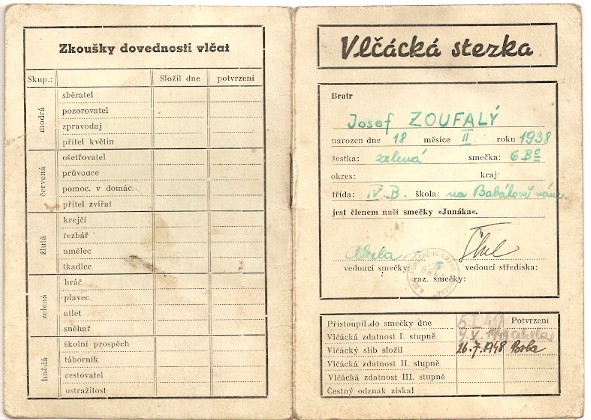 Zkoušky dovednosti vlčat
Skup.: Složil dne potvrzení
modrá
sběratel
pozorovatel
zpravodaj
přítel květin
červená
ošetřovatel
průvodce
pomoc. v domác.
přítel zvířat
žlutá
krejčí
řezbář
umělec
tkadlec
zelená
hráč
plavec
atlet
sněhař
hnědá
školní prospěch
táborník
cestovatel
ostražitost
Vlčácká stezka
Bratr
Josef ZOUFALÝ
narozen dne 18 měsíce II roku 1938
šestka: zelená smečka: 6
okres: kraj:
třída: IV. B. škola: na Babákově nám.
jest členem naší smečky »Junáka«.
vedoucí smečky: vedoucí střediska:
raz. smečky:
Potvrzení
Přistoupil do smečky dne
Vlčácká zdatnost I. stupně
Vlčácký slib složil 26.7.1948
Vlčácká zdatnost II. stupně
Vlčácká zdatnost III. stupně
Čestný odznak získal